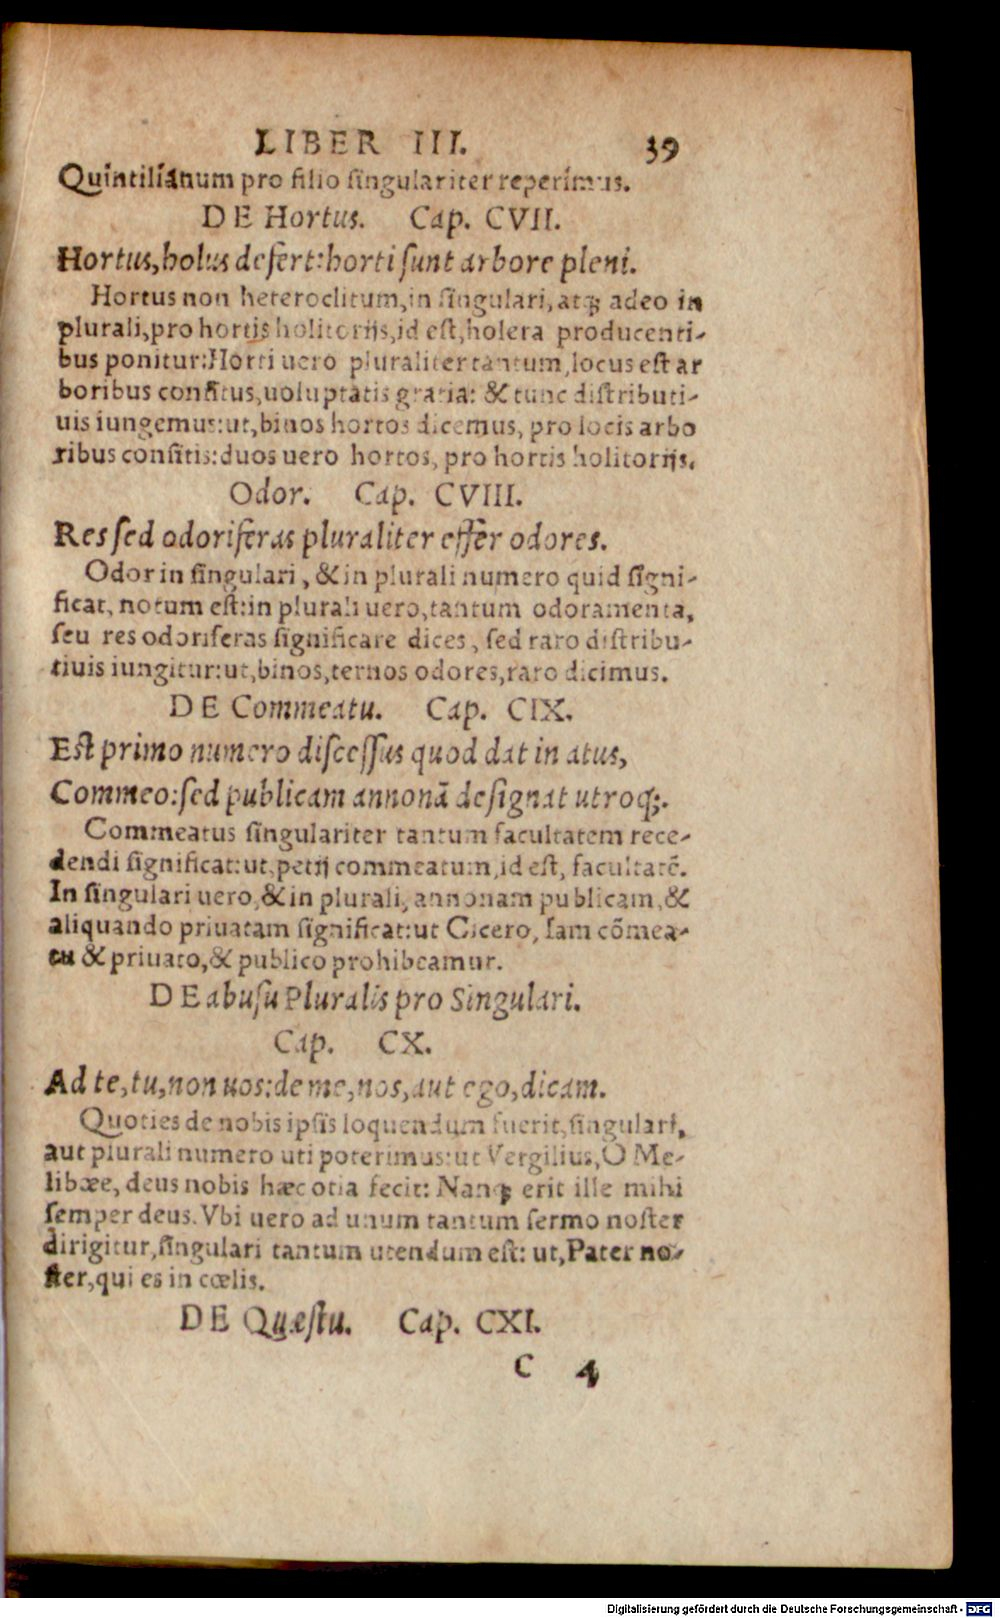 LIBER III. 39
Quintilianum pro filio ſingulariter reperimus.
DE Hortus. Cap. CVII.
Hortus, holus defert: horti ſunt arbore pleni.
Hortus non heteroclitum, in ſingulari, atq; adeo in
plurali, pro hortis holitorijs, id eſt, holera producenti-
bus ponitur: Horti uero pluraliter tantum, locus eſt ar
boribus conſitus, uoluptatis gratia: & tunc diſtributi-
uis iungemus: ut, binos hortos dicemus, pro locis arbo
ribus conſitis: duos uero hortos, pro hortis holitorijs.
Odor. Cap. CVIII.
Res ſed odoriferas pluraliter effer odores.
Odor in ſingulari, & in plurali numero quid ſigni-
ficat, notum eſt: in plurali uero, tantum odoramenta,
ſeu res odoriferas ſignificare dices, ſed raro diſtribu-
tiuis iungitur: ut, binos, ternos odores, raro dicimus.
DE Commeatu. Cap. CIX.
Eſt primo numero diſceſſus quod dat in atus,
Commeo: ſed publicam annonā deſignat utroq;.
Commeatus ſingulariter tantum facultatem rece-
dendi ſignificat: ut, petij commeatum, id eſt, facultatē.
In ſingulari uero, & in plurali, annonam publicam, &
aliquando priuatam ſignificat: ut Cicero, Iam cōmea-
tu & priuato, & publico prohibeamur.
DE abuſu Pluralis pro Singulari.
Cap. CX.
Ad te, tu, non uos: de me, nos, aut ego, dicam.
Quoties de nobis ipſis loquendum fuerit, ſingulari,
aut plurali numero uti poterimus: ut Vergilius, O Me-
libœe, deus nobis hæc otia fecit: Nanq; erit ille mihi
ſemper deus. Vbi uero ad unum tantum ſermo noſter
dirigitur, ſingulari tantum utendum eſt: ut, Pater no-
ſter, qui es in cœlis.
DE Quæſtu. Cap. CXI.
C 4
Digitalisierung gefördert durch die Deutsche Forschungsgemeinschaft - DFG